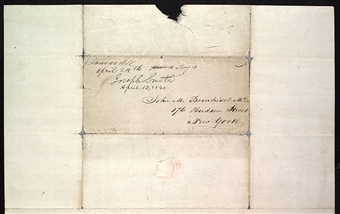 Nauvoo Ill
April 29th
Joseph Smith
April 13, 1841
John M. Bernhisel M.D.
176 Hudson Street
New York